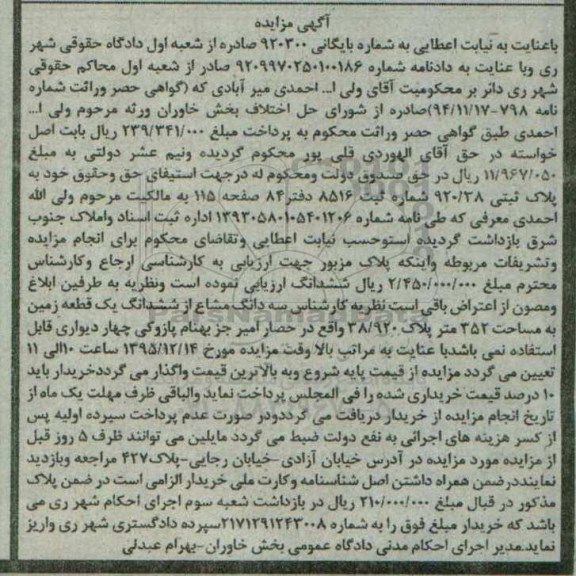 آگهی مزایده
باعنایت به نیابت اعطایی به شماره بایگانی ۹۲۰۳۰۰ صادره از شعبه اول دادگاه حقوقی شهر
ری وبا عنایت به دادنامه شماره ۹۲۰۹۹۷۰۲۵۰۱۰۰۱۸۶ صادر از شعبه اول محاکم حقوقی
شهر ری دائر بر محکومیت آقای ولی ا... احمدی میر آبادی که (گواهی حصر وراثت شماره
نامه ۷۹۸-۹۴/۱۱/۱۷)صادره از شورای حل اختلاف بخش خاوران ورثه مرحوم ولی ا...
احمدی طبق گواهی حصر وراثت محکوم به پرداخت مبلغ ۲۳۹/۳۴۱/۰۰۰ ریال بابت اصل
خواسته در حق آقای الهوردی قلی پور محکوم گردیده ونیم عشر دولتی به مبلغ
۱۱/۹۶۷/۰۵۰ ریال در حق صندوق دولت ومحکوم له درجهت استیفای حق وحقوق خود به
پلاک ثبتی ۹۲۰/۳۸ شماره ثبت ۸۵۱۶ دفتر۸۴ صفحه ۱۱۵ به مالکیت مرحوم ولی الله
احمدی معرفی که طی نامه شماره ۱۳۹۳۰۵۸۰۱۰۵۴۰۱۲۰۶ اداره ثبت اسناد واملاک جنوب
شرق بازداشت گردیده استوحسب نیابت اعطایی وتقاضای محکوم برای انجام مزایده
وتشریفات مربوطه واینکه پلاک مزبور جهت ارزیابی به کارشناسی ارجاع وکارشناس
محترم مبلغ ۲/۴۵۰/۰۰۰/۰۰۰ ریال ششدانگ ارزیابی نموده است ونظریه به طرفین ابلاغ
ومصون از اعتراض باقی است نظریه کارشناس سه دانگ مشاع از ششدانگ یک قطعه زمین
به مساحت ۳۵۲ متر پلاک ۳۸/۹۲۰ واقع در حصار امیر جز بهنام پازوکی چهار دیواری قابل
استفاده نمی باشدبا عنایت به مراتب بالا وقت مزایده مورخ ۱۳۹۵/۱۲/۱۴ ساعت ۱۰الی ۱۱
تعیین می گردد مزایده از قیمت پایه شروع وبه بالاترین قیمت واگذار می گرددخریدار باید
۱۰ درصد قیمت خریداری شده را فی المجلس پرداخت نماید والباقی ظرف مهلت یک ماه از
تاریخ انجام مزایده از خریدار دریافت می گرددودر صورت عدم پرداخت سپرده اولیه پس
از کسر هزینه های اجرائی به نفع دولت ضبط می گردد مایلین می توانند ظرف ۵ روز قبل
از مزایده مورد مزایده در آدرس خیابان آزادی-خیابان رجایی-پلاک۴۲۷ مراجعه وبازدید
نماینددرضمن همراه داشتن اصل شناسنامه وکارت ملی خریدار الزامی است در ضمن پلاک
مذکور در قبال مبلغ ۲۱۰/۰۰۰/۰۰۰ ریال در بازداشت شعبه سوم اجرای احکام شهر ری می
باشد که خریدار مبلغ فوق را به شماره ۲۱۷۱۲۹۱۲۴۳۰۰۸سپرده دادگستری شهر ری واریز
نماید.مدیر اجرای احکام مدنی دادگاه عمومی بخش خاوران-بهرام عبدلی